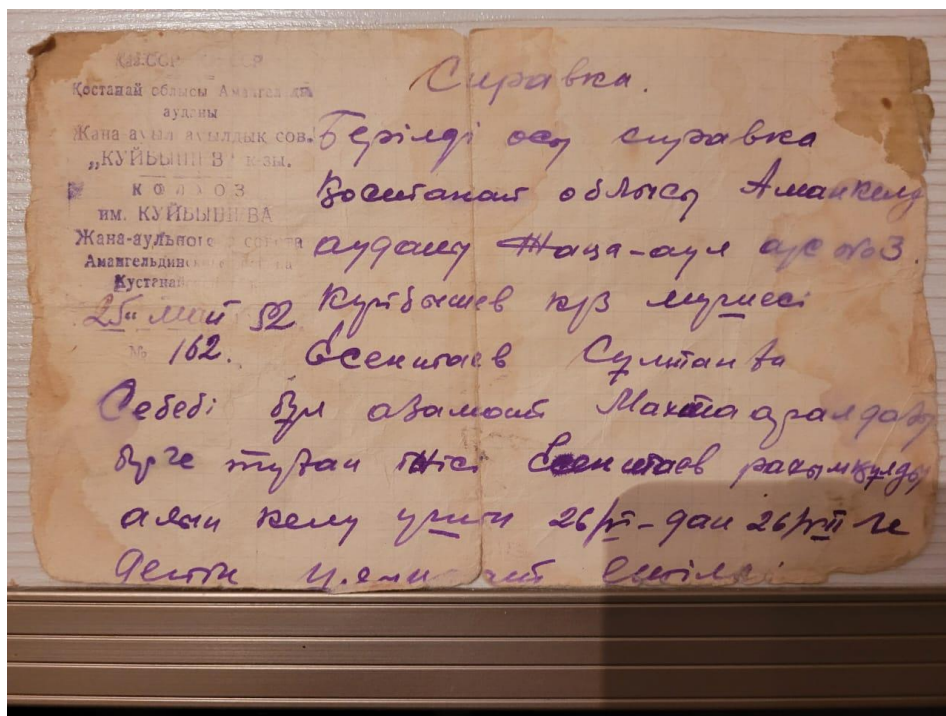 Қостанай облысы
ауданы
Жана ауыл ауылдық сов.
„КУЙБЫШЕВ" к-зы.
КОЛХОЗ
им. КУЙБЫШЕВА
Жана-аульного
Амангельдинского
25" май 52
№ 162.
Справка.
Берілді осы справка
Қостанай облысы Аманкелді
ауданы Жаңа-аул аус №3.
Куйбышев кз мүшесі
Есентаев Сұлтанға
Себебі бұл азамат Мақтааралдағы
бірге туған інісі Есентаев рахымқұлды
алып келу үшін 26/VI-дан 26/VII ге
дейін